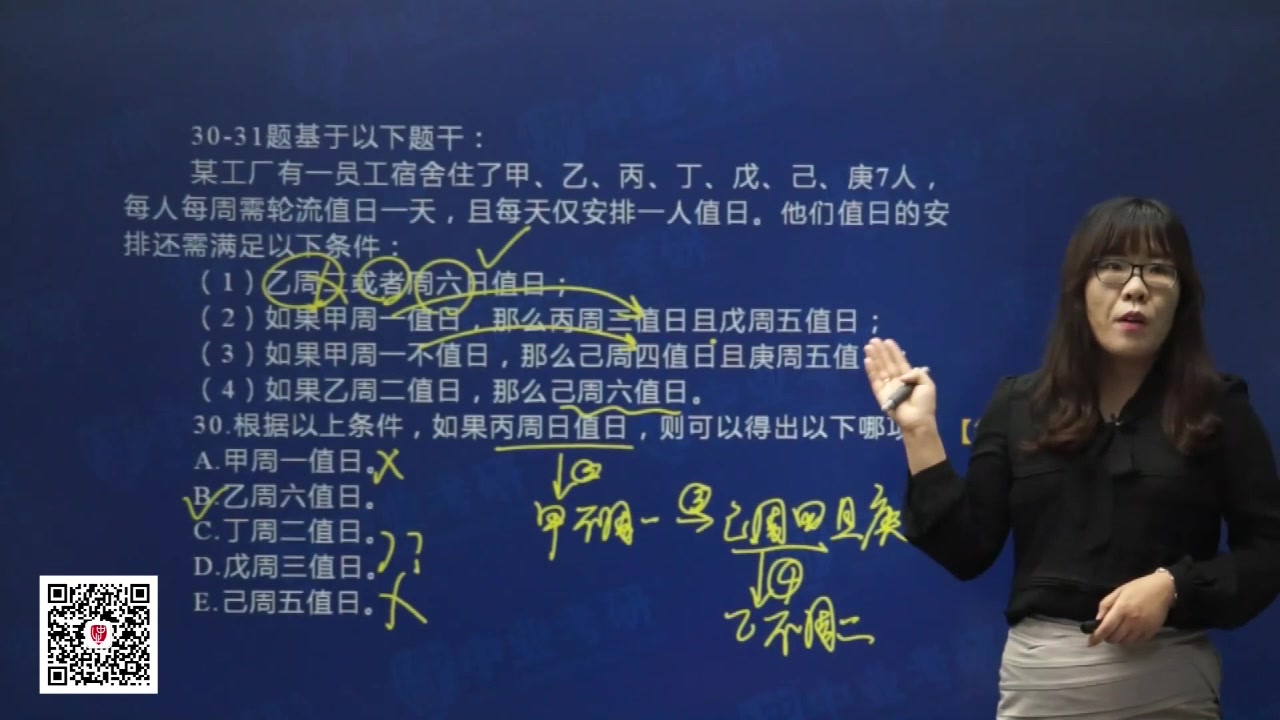 30-31题基于以下题干：
某工厂有一员工宿舍住了甲、乙、丙、丁、戊、己、庚7人，
每人每周需轮流值日一天，且每天仅安排一人值日。他们值日的安
排还需满足以下条件：
（1）乙周二或者周六日值日；
（2）如果甲周一值日，那么丙周三值日且戊周五值日；
（3）如果甲周一不值日，那么己周四值日且庚周五值
（4）如果乙周二值日，那么己周六值日。
30.根据以上条件，如果丙周日值日，则可以得出以下哪项
A.甲周一值日。
B.乙周六值日。
C.丁周二值日。
D.戊周三值日。
E.己周五值日。
②
甲不周一 ③ 己周四且庚
④
乙不周二
??